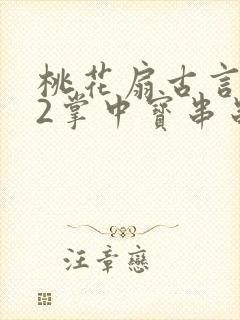 桃花扇古言
2掌中寶串
汪章戀